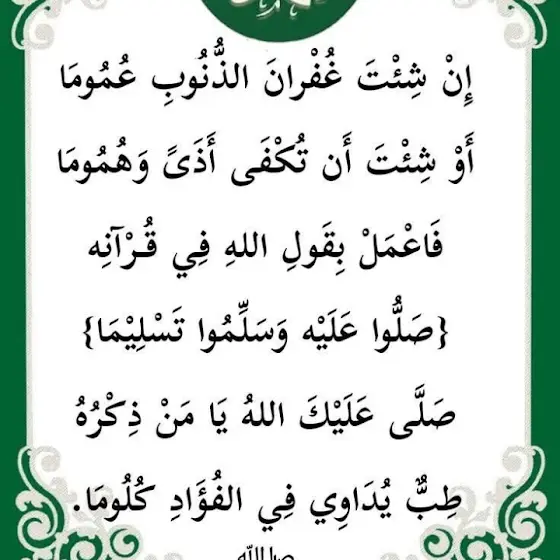 إِنْ شِئْتَ غُفْرانَ الذُّنُوبِ عُمُومَا
أَوْ شِئْتَ أَن تُكْفَى أَذَىً وَهُمُومَا
فَاعْمَلْ بِقَولِ اللهِ فِي قُرْآنِه
{صَلُّوا عَلَيْه وَسَلِّمُوا تَسْلِيْمَا}
صَلَّى عَلَيْكَ اللهُ يَا مَنْ ذِكْرُهُ
طِبٌّ يُدَاوِي فِي الفُؤَادِ كُلُومَا.